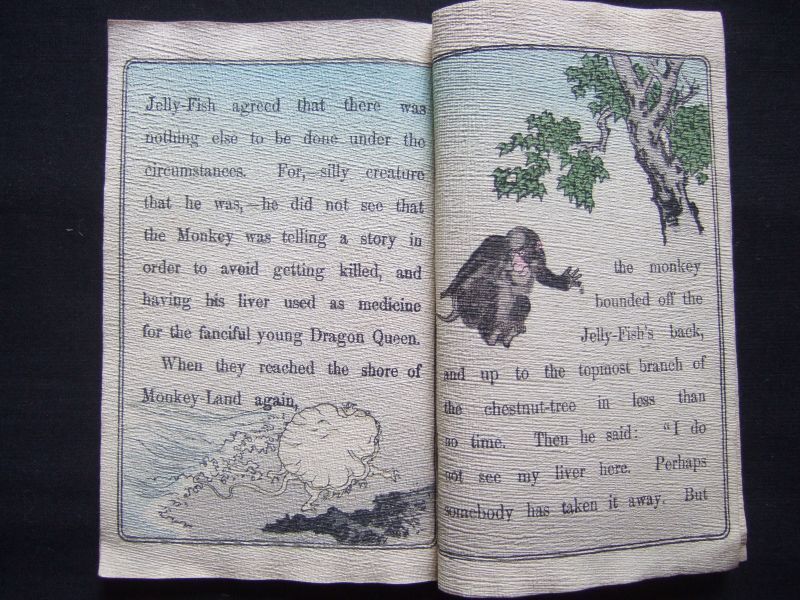 Jelly-Fish agreed that there was
nothing else to be done under the
circumstances. For,—silly creature
that he was,—he did not see that
the Monkey was telling a story in
order to avoid getting killed, and
having his liver used as medicine
for the fanciful young Dragon Queen.
When they reached the shore of
Monkey-Land again,
the monkey
bounded off the
Jelly-Fish's back,
and up to the topmost branch of
the chestnut-tree in less than
no time. Then he said: "I do
not see my liver here. Perhaps
somebody has taken it away. But